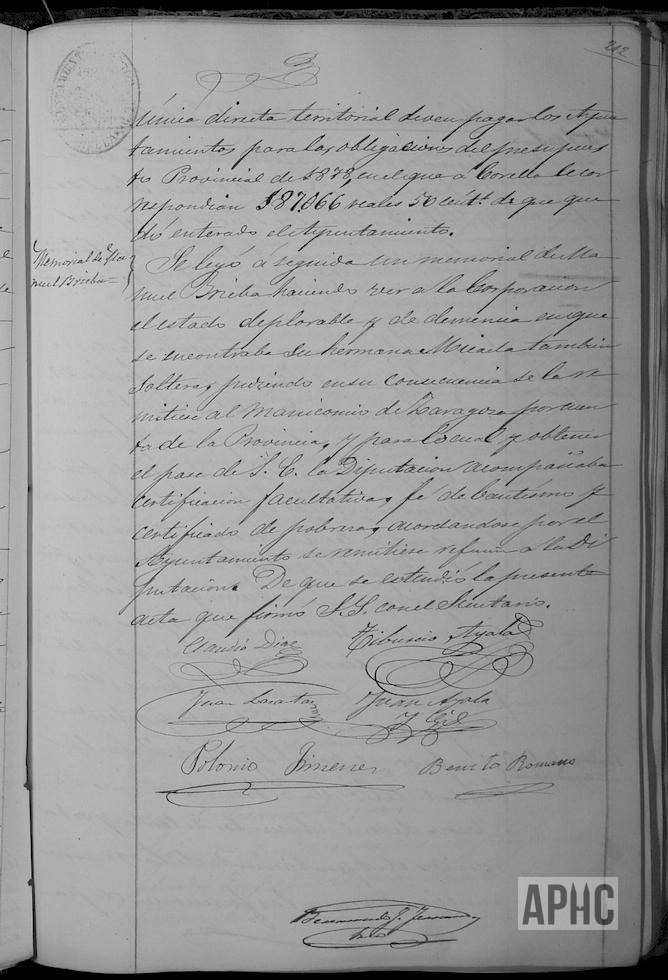 212
única directa territorial deven pagar los Ayun
tamientos para las obligaciones del presupues
to Provincial de 1878, en el que á Corella le cor
respondian 187.066 reales 50 cent.s de que que
dó enterado el Ayuntamiento.
Memorial de Ma
nuel Brieba
Se leyó á seguida un memorial de Ma
nuel Brieba haciendo ver a la Corporacion
el estado deplorable y de demencia en que
se encontraba su hermana Micaela tambien
soltera, pidiendo en su consecuencia se la re
mitiese al Manicomio de Zaragoza por cuen
ta de la Provincia, y para lo cual y obtener
el pase de S. E. la Diputacion acompañaba
certificacion facultativa, fé de bautismo y
certificado de pobreza, acordandose por el
Ayuntamiento se remitiese á la Di
putacion. De que se estendió la presente
acta que firmó S.S. con el Secretario.
Claudio Diaz
Tiburcio Ayala
Juan
Juan Ayala
y Gil
Polonio Jimenez
Benito Romano
APHC